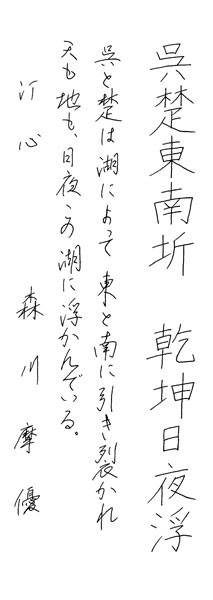 呉楚東南圻　乾坤日夜浮
呉と楚は湖によって東と南に引き裂かれ
天も地も、日夜この湖に浮かんでいる。
汀心　森川摩優